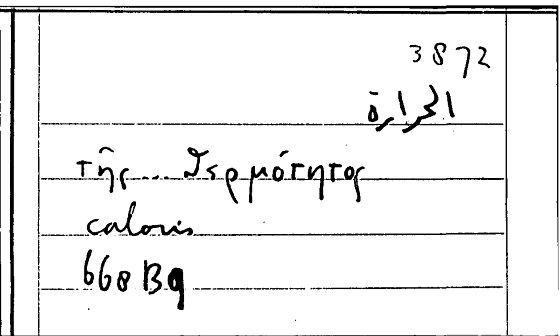 3872
الحرارة
τῆς... θερμότητος
caloris
668 B9